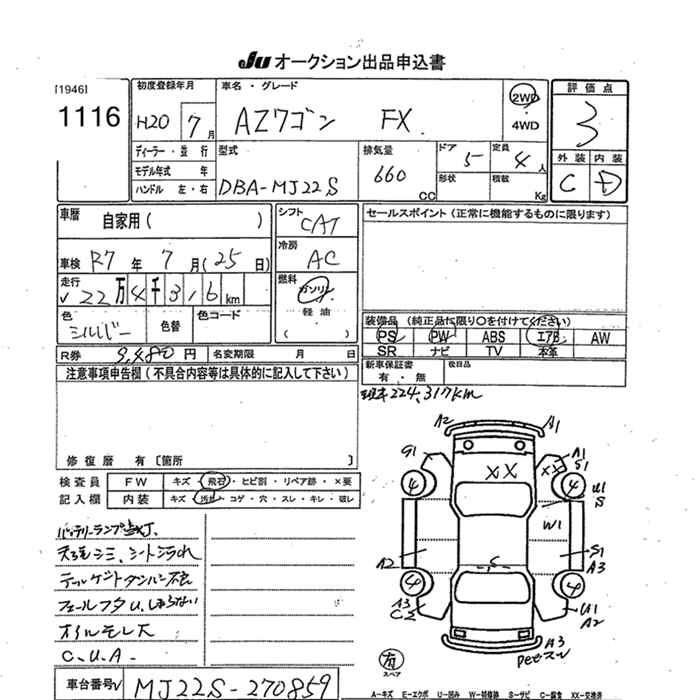 JU オークション出品申込書
[1946]
1116
初度登録年月
H20 7月
車名・グレード
AZワゴン FX
2WD
4WD
評価点
3
外装 内装
C D
ディーラー・並行
モデル年式 年
ハンドル 左・右
型式
DBA-MJ22S
排気量
660 CC
ドア 5
形状
定員 4人
積数 Kg
車歴 自家用( )
車検 R7年 7月(25日)
走行
√ 22万4千316km
色 シルバー
色替
色コード
シフト
CAT
冷房
AC
燃料
ガソリン
軽油
( )
セールスポイント(正常に機能するものに限ります)
装備品(純正品に限り○を付けてください)
PS PW ABS エアB AW
SR ナビ TV 本革
新車保証書
有・無
後日品
R券 9,480円 名変期限 月 日
注意事項申告欄(不具合内容等は具体的に記入して下さい)
現車224,317km
修復歴 有〔箇所 〕
検査員
記入欄
FW キズ・飛石・ヒビ割・リペア跡・×要
内装 キズ・汚れ・コゲ・穴・スレ・キレ・破レ
バッテリーランプ点灯、
天張シミ、シート汚れ
テールゲートダンパー不良
フューエルフタU、しまらない
オイルモレ大
C.U.A.
車台番号√ MJ22S-270859
A2 A1
G1 XX XX A1 S1
4 4
U1 S
W1
A2 S S1 A3
4 4
A3 C2 U1 A2
A3
有
スペア
A−キズ E−エクボ U−凹み W−補修跡 S−サビ C−腐食 XX−交換済